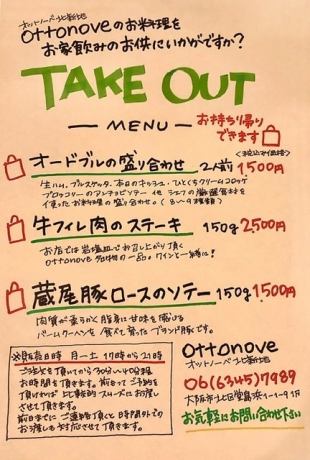 オットノーベ北新地
ottonoveのお料理を
お家飲みのお供にいかがですか?
TAKE OUT
MENU
お持ち帰り
できます
〈税込み価格〉
オードブルの盛り合わせ 2人前 1500円
生ハム、ブルスケッタ、本日のキッシュ、ひとくちクリームコロッケ
ブロッコリーのアンチョビソテー 他 シェフの厳選食材を
使ったお料理の盛り合わせ。(8〜9種類)
牛フィレ肉のステーキ 150g 2,500円
お店では岩塩皿でお召し上がり頂く
ottonove名物の一品。ワインと一緒に!
蔵尾豚ロースのソテー 150g 1,500円
肉質が柔らかく脂身に甘味を感じる
バームクーヘンを食べて育ったブランド豚です。
※販売日時 月〜土 17時から21時
ご注文を頂いてから30分〜40分程
お時間を頂きます。前もってご予約を
頂ければ比較的スムーズにお渡し
させて頂きます。
前日までにご連絡頂くと時間外での
お渡しも対応させて頂きます。
ottonove
オットノーベ北新地
06(6345)7989
大阪市北区堂島浜1-1-9 1F
お気軽にお問い合わせ下さい